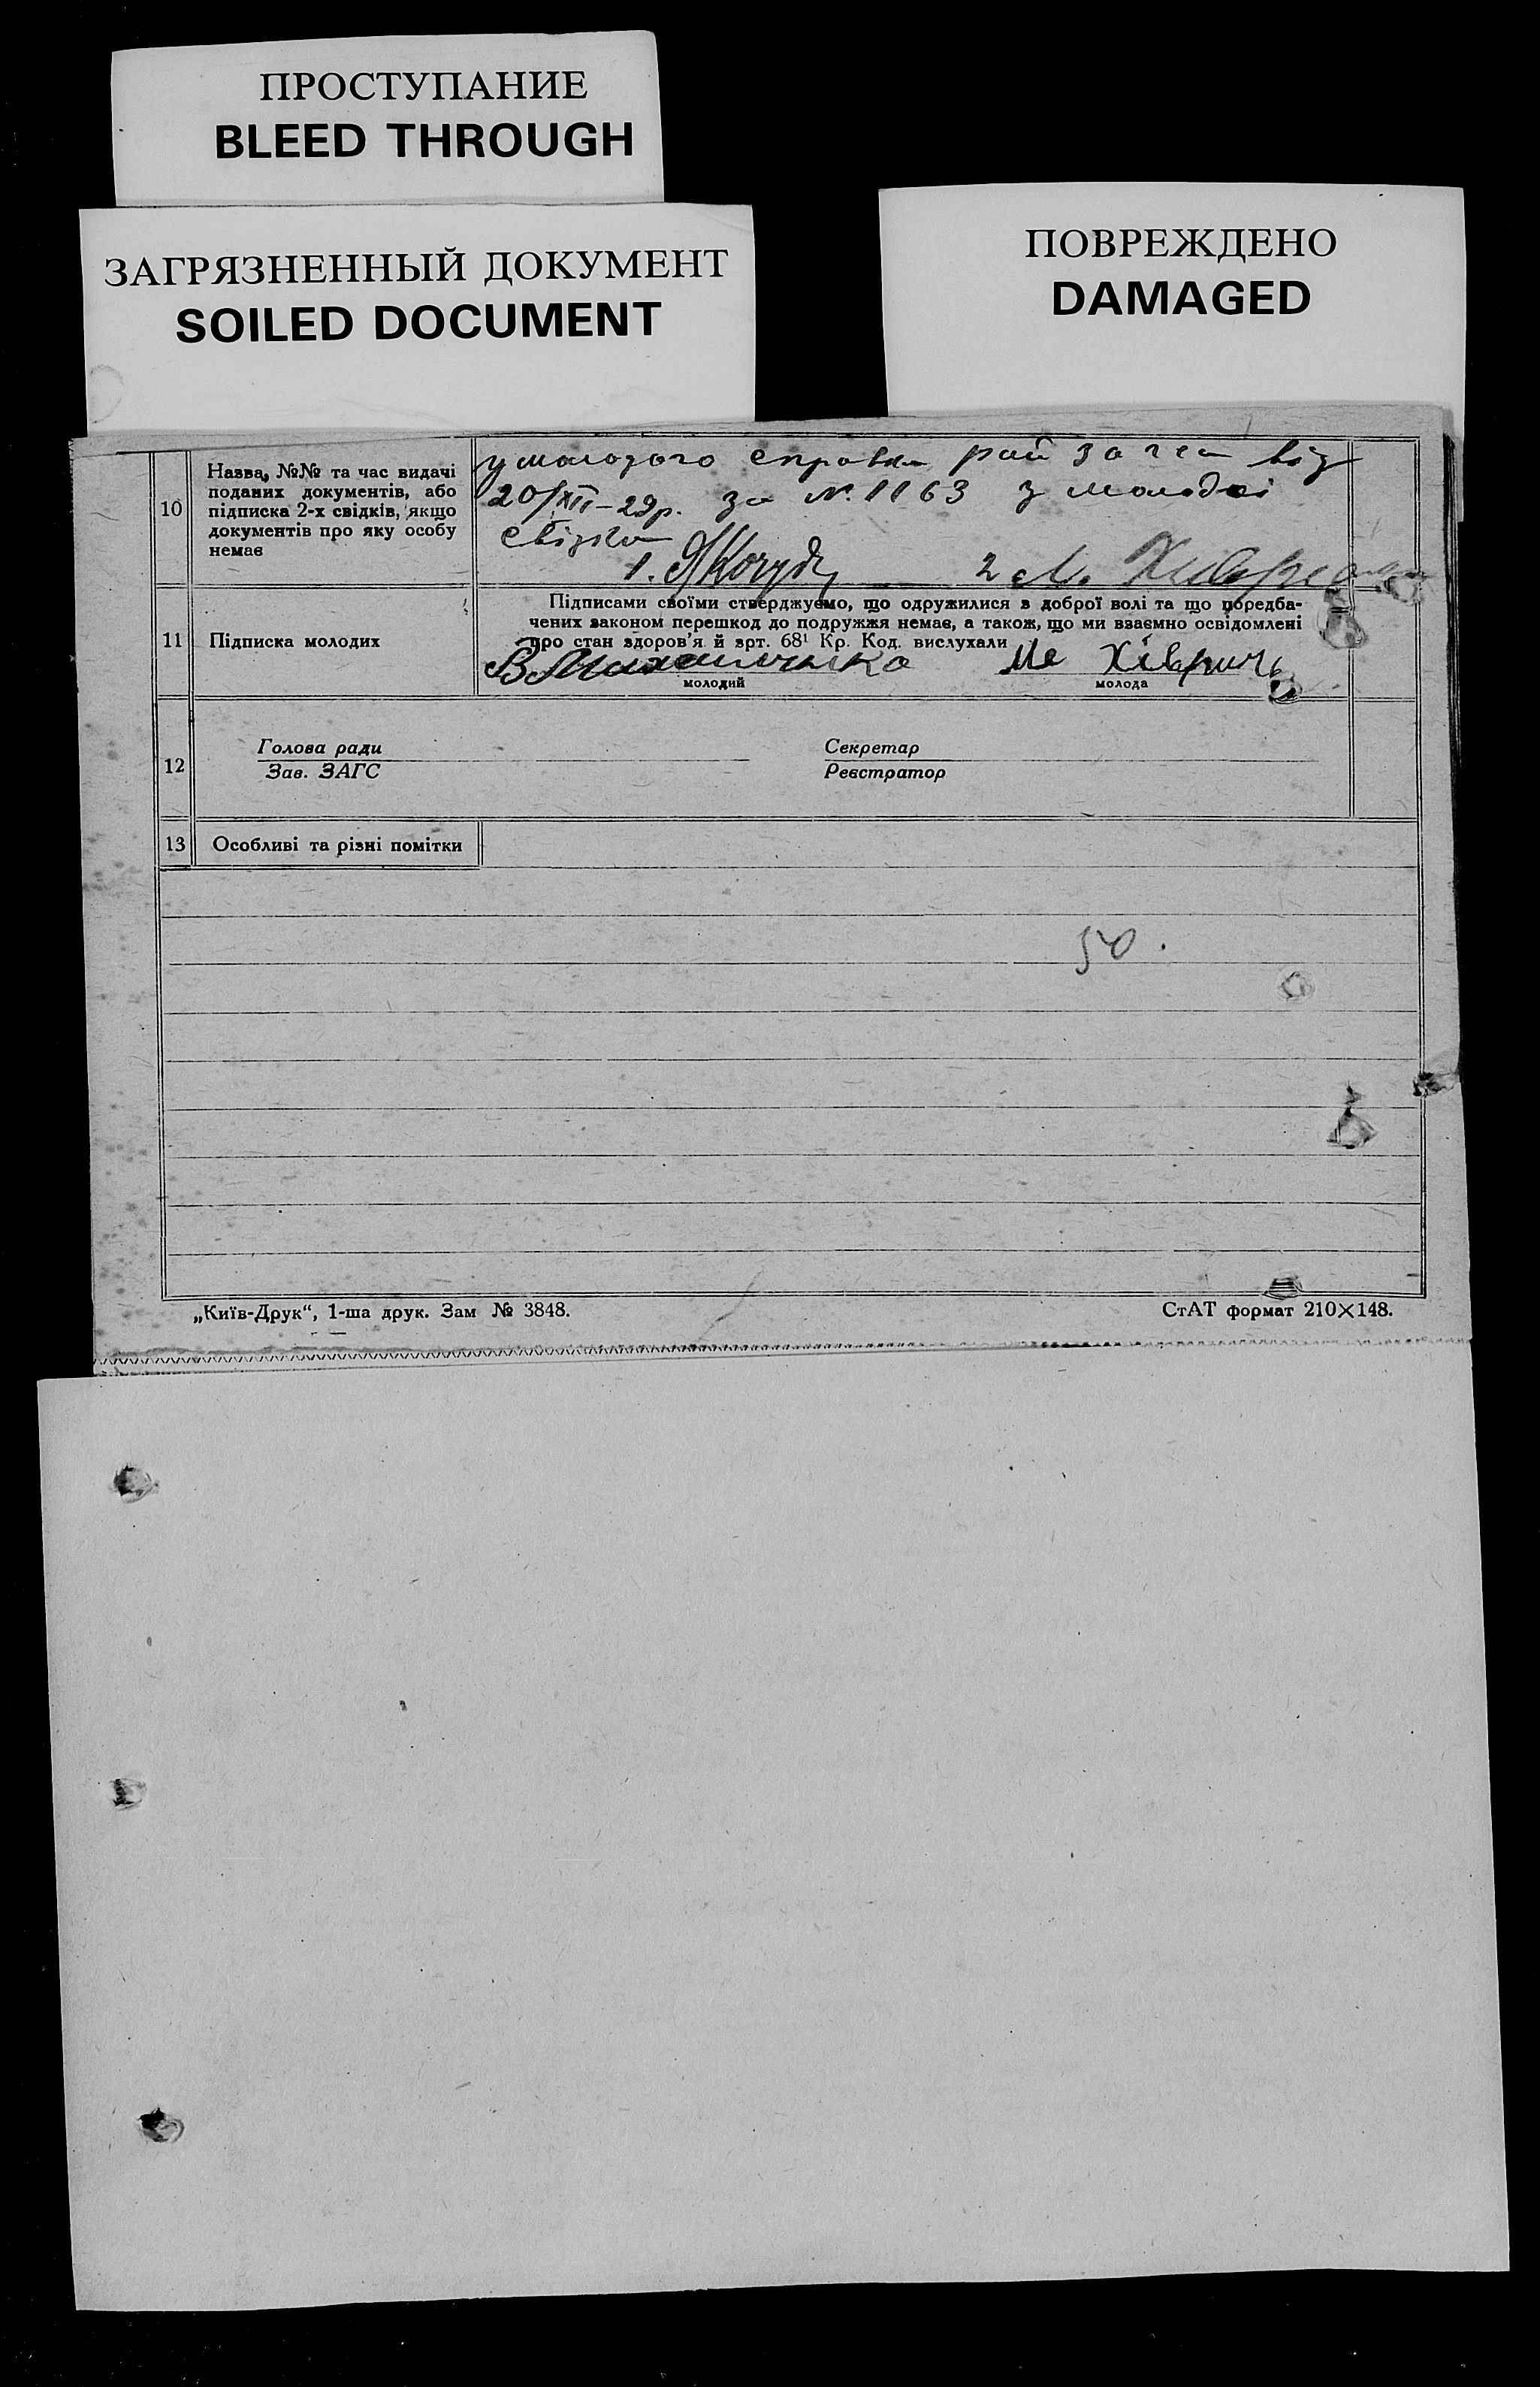 ПРОСТУПАНИЕ
BLEED THROUGH
ЗАГРЯЗНЕННЫЙ ДОКУМЕНТ
SOILED DOCUMENT
ПОВРЕЖДЕНО
DAMAGED
10
Назва, №№ та час видачі
поданих документів, або
підписка 2-х свідків, якщо
документів про яку особу
немає
у молодого справка рай загса від
20/XII-29р. за №. 1163 з молодої
свідки
1. 2
11
Підписка молодих
Підписами своїми стверджуємо, що одружилися в доброї волі та що поредба-
чених законом перешкод до подружжя немає, а також, що ми взаємно освідомлені
про стан здоров'я й арт. 68¹ Кр. Код. вислухали
молодий
молода
12
Голова ради
Зав. ЗАГС
Секретар
Реєстратор
13
Особливі та різні помітки
50.
„Київ-Друк“, 1-ша друк. Зам № 3848.
СтАТ формат 210×148.